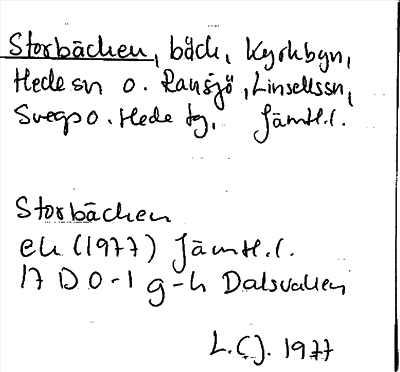 Storbäcken, bäck, Kyrkbyn,
Hede sn o. Ransjö, Linsellssn,
Svegs o. Hede tg, Jämtl.l.
Storbäcken
ek (1977) Jämtl.l.
17 D 0-1 g-h Dalsvallen
L.CJ. 1977